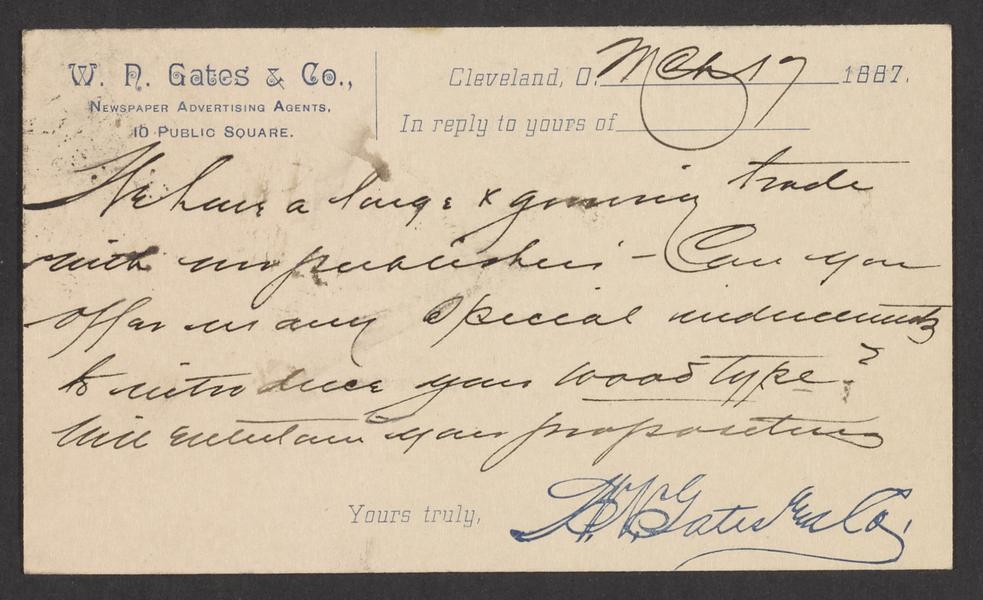 W. N. Gates & Co.,
Newspaper Advertising Agents,
10 Public Square.
Cleveland, O. Mch 17 1887.
In reply to yours of
We have a large & growing trade
with our publishers - Can you
offer us any special inducements
to introduce your wood type?
Will entertain your proposition
Yours truly,
W. N. Gates and Co.